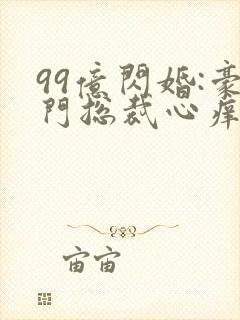 99億閃婚:豪
門総裁心痒
宙宙